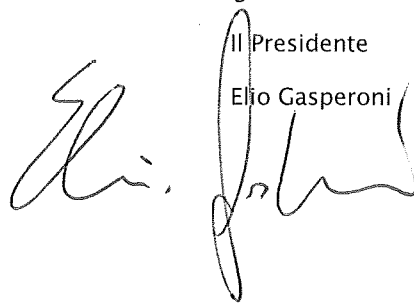 Il Presidente
Elio Gasperoni